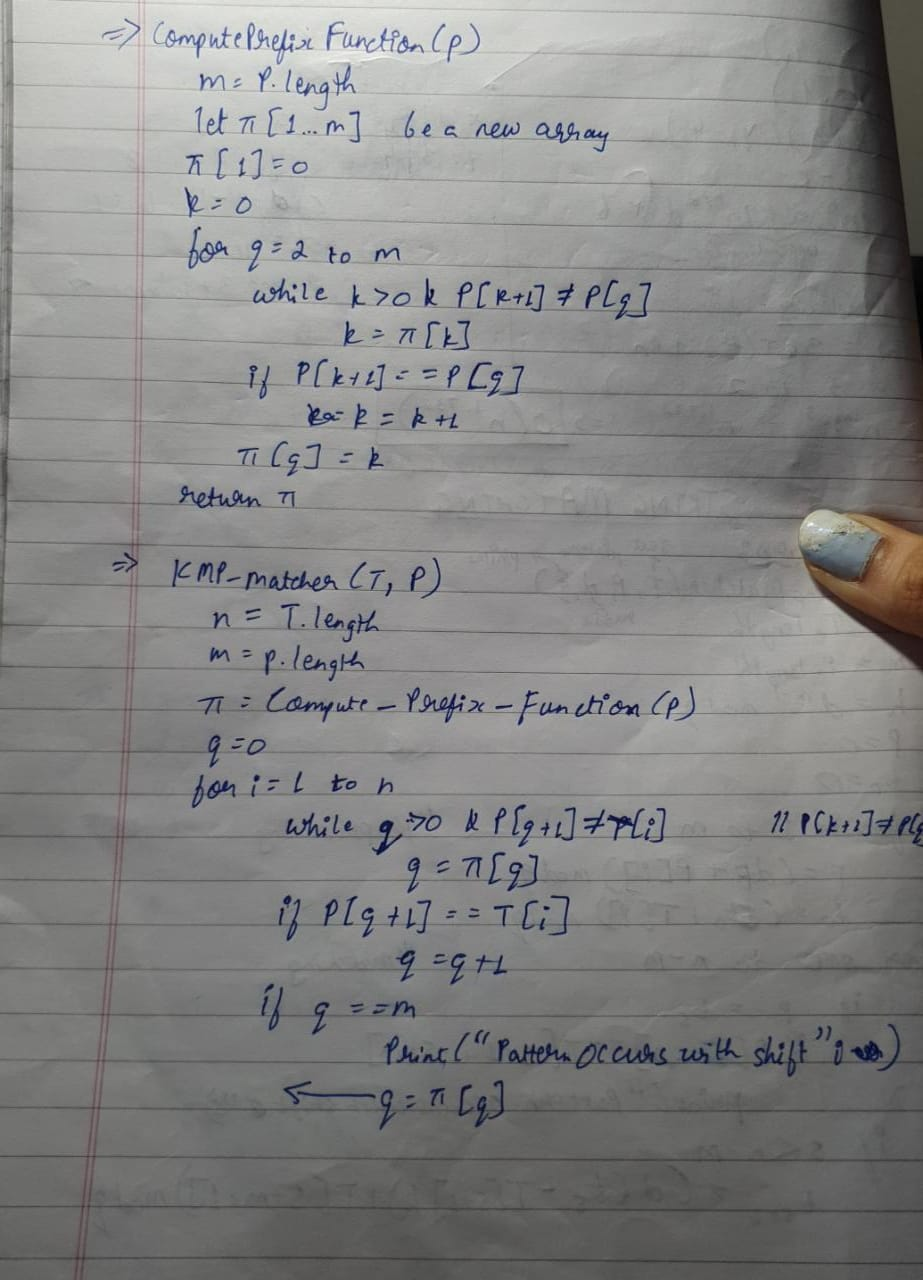 => ComputePrefix Function(P)
m = P.length
let π [1...m] be a new array
π [1] = 0
k = 0
for q = 2 to m
while k > 0 & P[k+1] ≠ P[q]
k = π [k]
if P[k+1] == P[q]
k = k+1
π [q] = k
return π
=> KMP-matcher (T, P)
n = T.length
m = p.length
π = Compute - Prefix - Function (P)
q = 0
for i = 1 to n
while q > 0 & P[q+1] ≠ T[i] // P[k+1] ≠ P[q
q = π [q]
if P[q+1] == T[i]
q = q+1
if q == m
Print ("Pattern Occurs with shift" )
<— q = π [q]